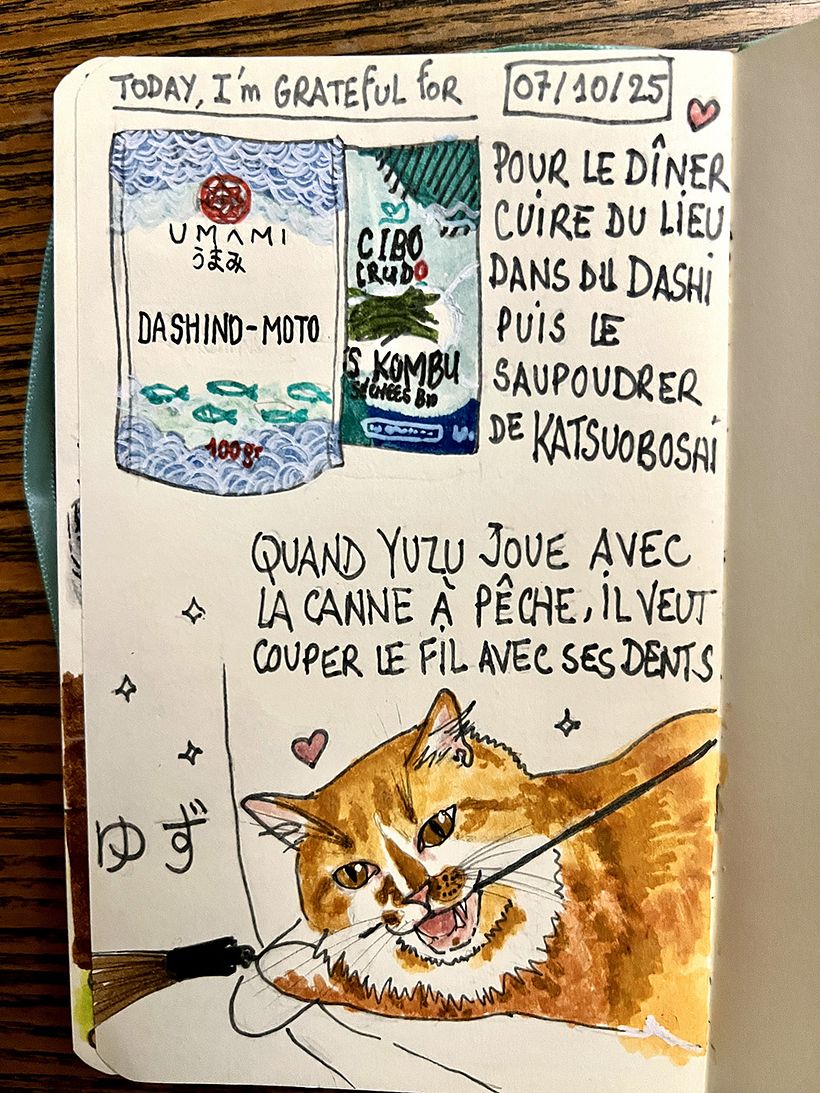 TODAY, I'm GRATEFUL FOR
07/10/25
UMAMI
うまみ
DASHINO-MOTO
100gr
CIBO
CRUDO
S KOMBU
SÉCHÉES BIO
POUR LE DÎNER
CUIRE DU LIEU
DANS DU DASHI
PUIS LE
SAUPOUDRER
DE KATSUOBOSHI
QUAND YUZU JOUE AVEC
LA CANNE À PÊCHE, IL VEUT
COUPER LE FIL AVEC SES DENTS
ゆず